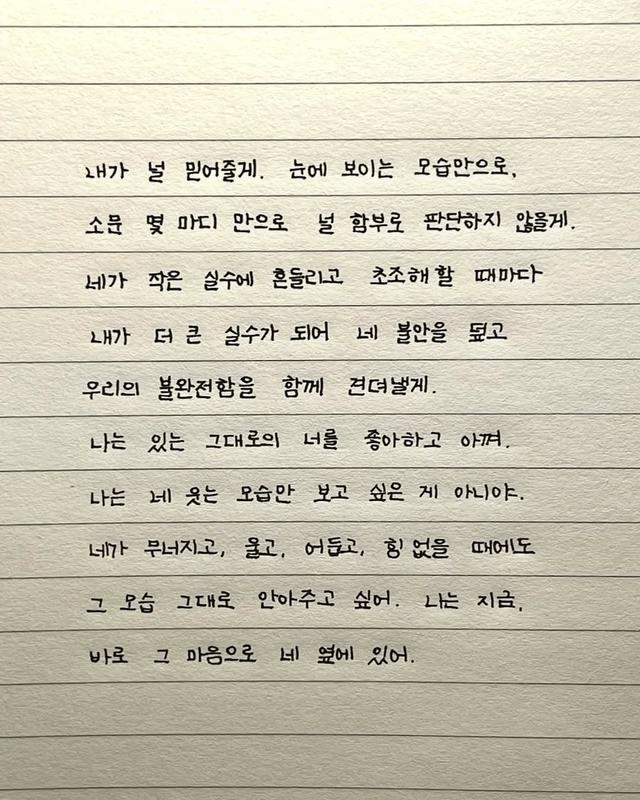 내가 널 믿어줄게. 눈에 보이는 모습만으로,
소문 몇 마디 만으로 널 함부로 판단하지 않을게.
네가 작은 실수에 흔들리고 초조해할 때마다
내가 더 큰 실수가 되어 네 불안을 덮고
우리의 불완전함을 함께 견뎌낼게.
나는 있는 그대로의 너를 좋아하고 아껴.
나는 네 웃는 모습만 보고 싶은 게 아니야.
네가 무너지고, 울고, 어둡고, 힘없을 때에도
그 모습 그대로 안아주고 싶어. 나는 지금,
바로 그 마음으로 네 옆에 있어.